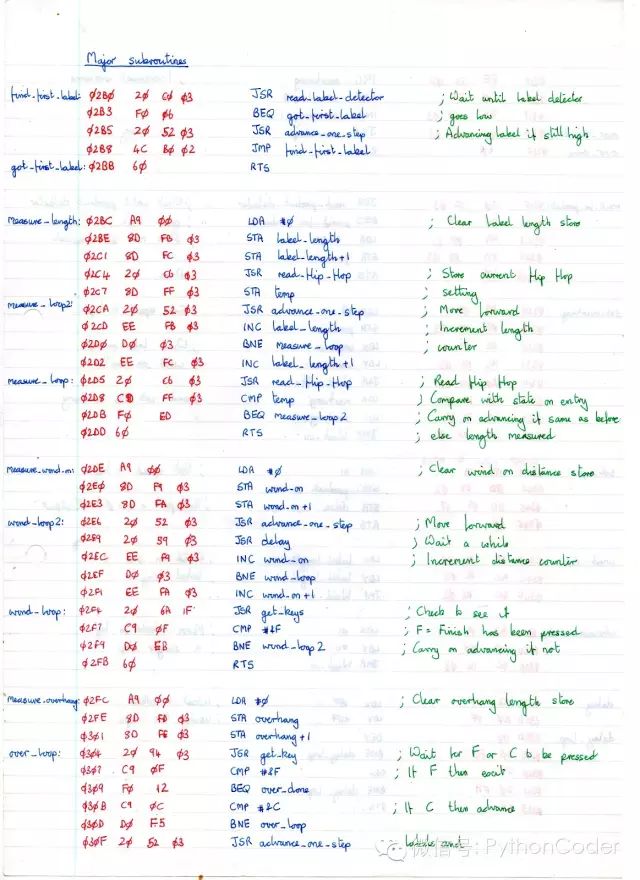 Major subroutines
find_first_label: Ø2BØ 2Ø CØ Ø3 JSR read_label_detector ; Wait until label detector
Ø2B3 FØ Ø6 BEQ got_first_label ; goes low
Ø2B5 2Ø 52 Ø3 JSR advance_one_step ; Advancing label if still high
Ø2B8 4C BØ Ø2 JMP find_first_label
got_first_label: Ø2BB 6Ø RTS
Measure_length: Ø2BC A9 ØØ LDA #Ø ; Clear label length store
Ø2BE 8D FB Ø3 STA label_length
Ø2C1 8D FC Ø3 STA label_length+1
Ø2C4 2Ø C6 Ø3 JSR read_Hip_Hop ; Store current Hip Hop
Ø2C7 8D FF Ø3 STA temp ; setting
Measure_loop2: Ø2CA 2Ø 52 Ø3 JSR advance_one_step ; Move forward
Ø2CD EE FB Ø3 INC label_length ; Increment length
Ø2DØ DØ Ø3 BNE Measure_loop ; counter
Ø2D2 EE FC Ø3 INC label_length+1
Measure_loop: Ø2D5 2Ø C6 Ø3 JSR read_Hip_Hop ; Read Hip Hop
Ø2D8 CD FF Ø3 CMP temp ; Compare with state on entry
Ø2DB FØ ED BEQ measure_loop2 ; Carry on advancing if same as before
Ø2DD 6Ø RTS ; else length measured
Measure_wind_on: Ø2DE A9 ØØ LDA #Ø ; Clear wind on distance store
Ø2EØ 8D F9 Ø3 STA wind_on
Ø2E3 8D FA Ø3 STA wind_on+1
wind_loop2: Ø2E6 2Ø 52 Ø3 JSR advance_one_step ; Move forward
Ø2E9 2Ø 59 Ø3 JSR delay ; Wait a while
Ø2EC EE F9 Ø3 INC wind_on ; Increment distance counter
Ø2EF DØ Ø3 BNE wind_loop
Ø2F1 EE FA Ø3 INC wind_on+1
wind_loop: Ø2F4 2Ø 6A 1F JSR get_keys ; Check to see if
Ø2F7 C9 ØF CMP #&F ; F = Finish has been pressed
Ø2F9 DØ EB BNE wind_loop2 ; Carry on advancing if not
Ø2FB 6Ø RTS
Measure_overhang: Ø2FC A9 ØØ LDA #Ø ; Clear overhang length store
Ø2FE 8D FD Ø3 STA overhang
Ø3Ø1 8D FE Ø3 STA overhang+1
over_loop: Ø3Ø4 2Ø 94 Ø3 JSR get_key ; Wait for F or C to be pressed
Ø3Ø7 C9 ØF CMP #&F ; If F then exit
Ø3Ø9 FØ 12 BEQ over_done
Ø3ØB C9 ØC CMP #&C ; If C then advance
Ø3ØD DØ F5 BNE over_loop
Ø3ØF 2Ø 52 Ø3 JSR advance_one_step
微信号: PythonCoder